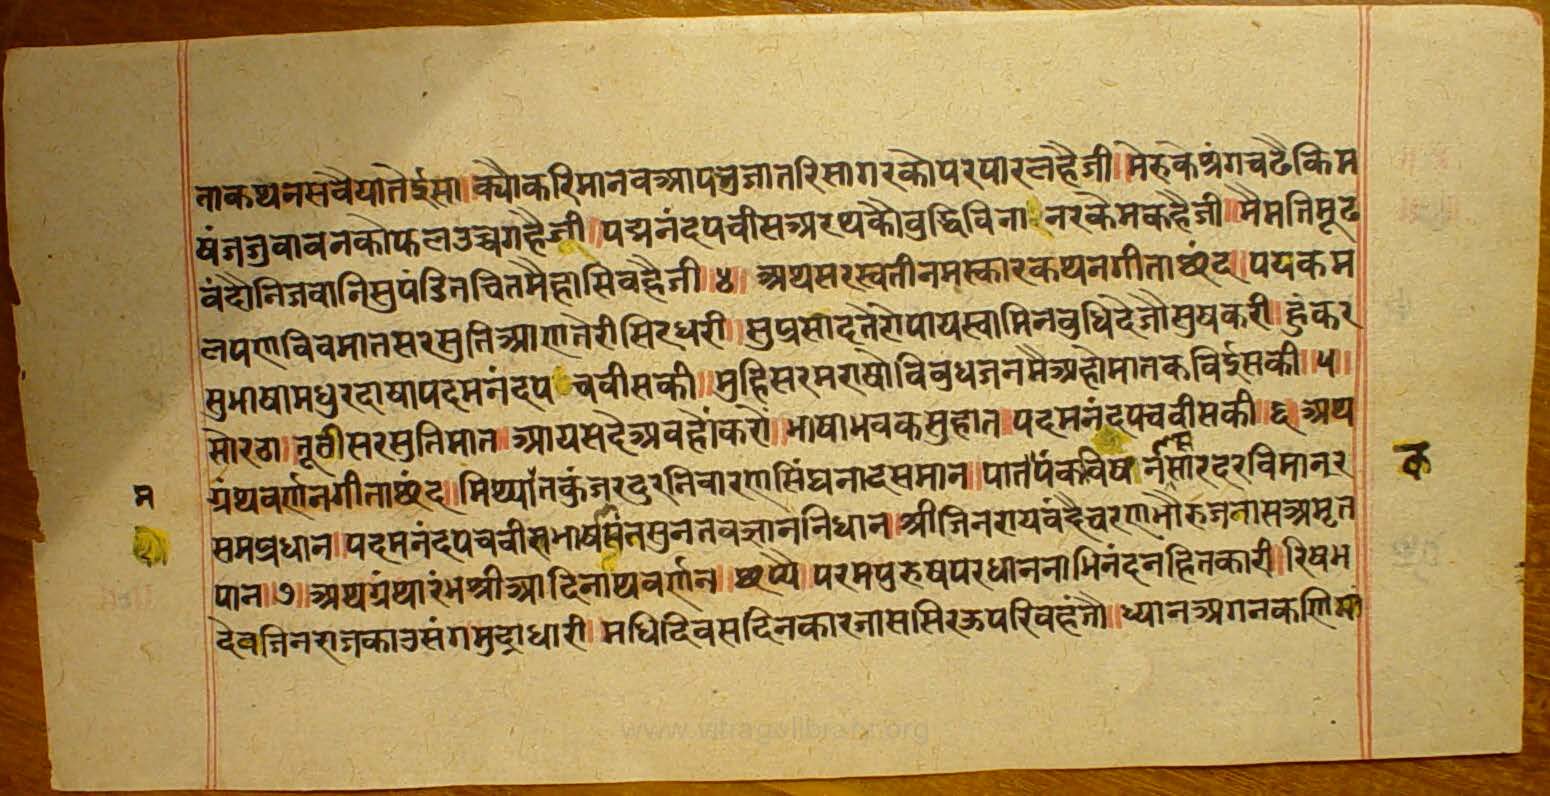 ताकथनसवैयातेईसा॥क्यौकरिमानवआपभुजातरिसागरकौपरपारलहैजी॥मेरुकेश्रंगचढैकिम
षंजजुवावनकौफलउच्चगहैजी॥पद्मनंदपचीसअरथकौबुद्धिविनानरकैमकहैजी॥मैमतिमूढ
वंदौनिजवानिसुपंडितचितमैहासिवहैजी॥४॥अथसरस्वतीनमस्कारकथनगीताछंद॥पयकम
लपणविवमातसरसुतिआणतेरीसिरधरी॥सुप्रसादतेरोपायस्वामिनबुधिदैजौसुषकरी॥हुंकर
सुभाषामधुरदाषापदमनंदपचवीसकी॥मुहिसरमराषौविबुधजनमैअहोमातकविईसकी॥५॥
सोरठा॥तूठीसरसुतिमात॥आयसदैअवहौंकरौं॥भाषाभवकसुहात॥पदमनंदपचवीसकी॥६॥अथ
ग्रंथवर्णनगीताछंद॥मिथ्यातकुंजरदुरनिवारणसिंघनादसमान॥पातपंकविघर्नसोरदरविमानर
म
क
समप्रधान॥पदमनंदपचवीसभाषसंतसुनतवज्ञाननिधान॥श्रीजिनरायवंदैचरणभौरुजनासअमृत
पान॥७॥अथग्रंथारंभश्रीआदिनाथवर्णन॥छप्पै॥परमपुरुषपरधाननाभिनंदनहितकारी॥रिषभ
देवजिनराजकाउसंगमुद्राधारी॥मधिदिवसदिनकारजाससिरऊपरिवहंतौ॥ध्यानअगनकणिमां
www.vitragvlibrary.org